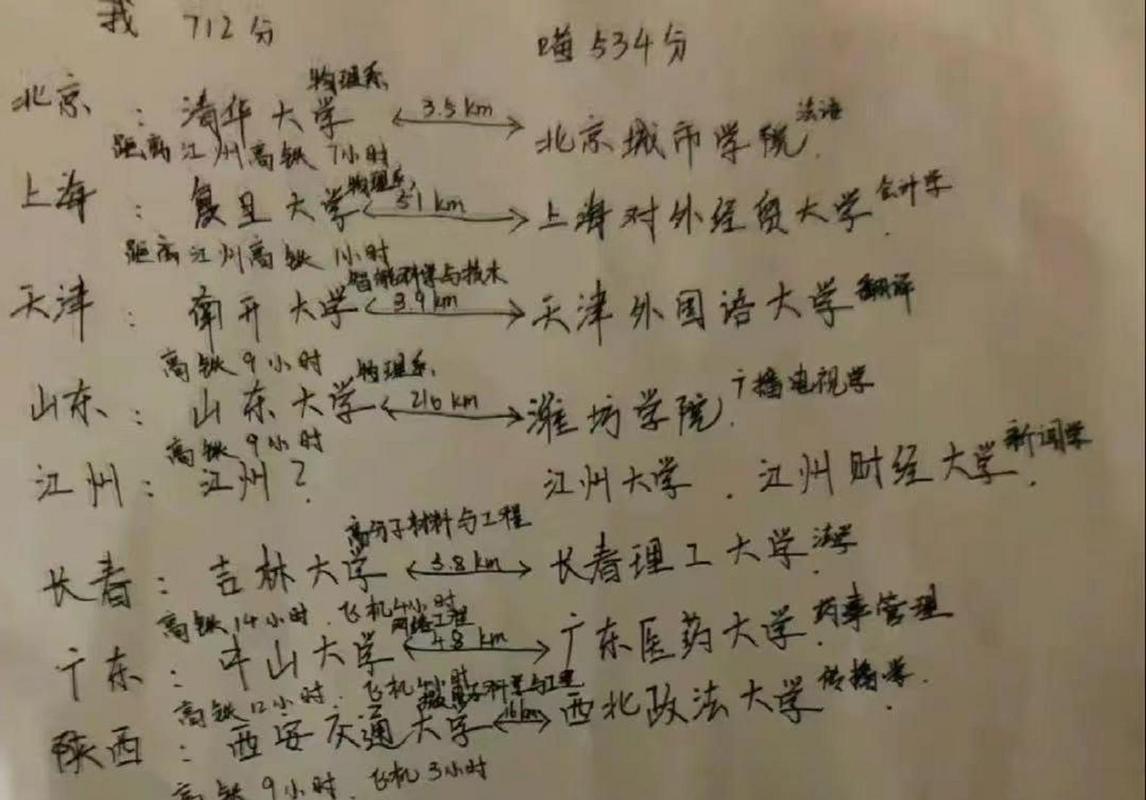 我 712分 喵534分
物理系
北京：清华大学 3.5km 北京城市学院 法语
距离江州高铁7小时
物理系
上海：复旦大学 51km 上海对外经贸大学 会计学
距离江州高铁1小时
智能科学与技术
天津：南开大学 3.9km 天津外国语大学 翻译
高铁9小时 物理系
山东：山东大学 216km 潍坊学院 广播电视学
高铁9小时
江州：江州？ 江州大学．江州财经大学 新闻学
高分子材料与工程
长春：吉林大学 3.8km 长春理工大学 法学
高铁14小时．飞机4小时
网络工程
广东：中山大学 48km 广东医药大学 药事管理
高铁12小时．飞机4小时
科学与工程
陕西：西安交通大学 16km 西北政法大学 传播学．
高铁9小时．飞机3小时